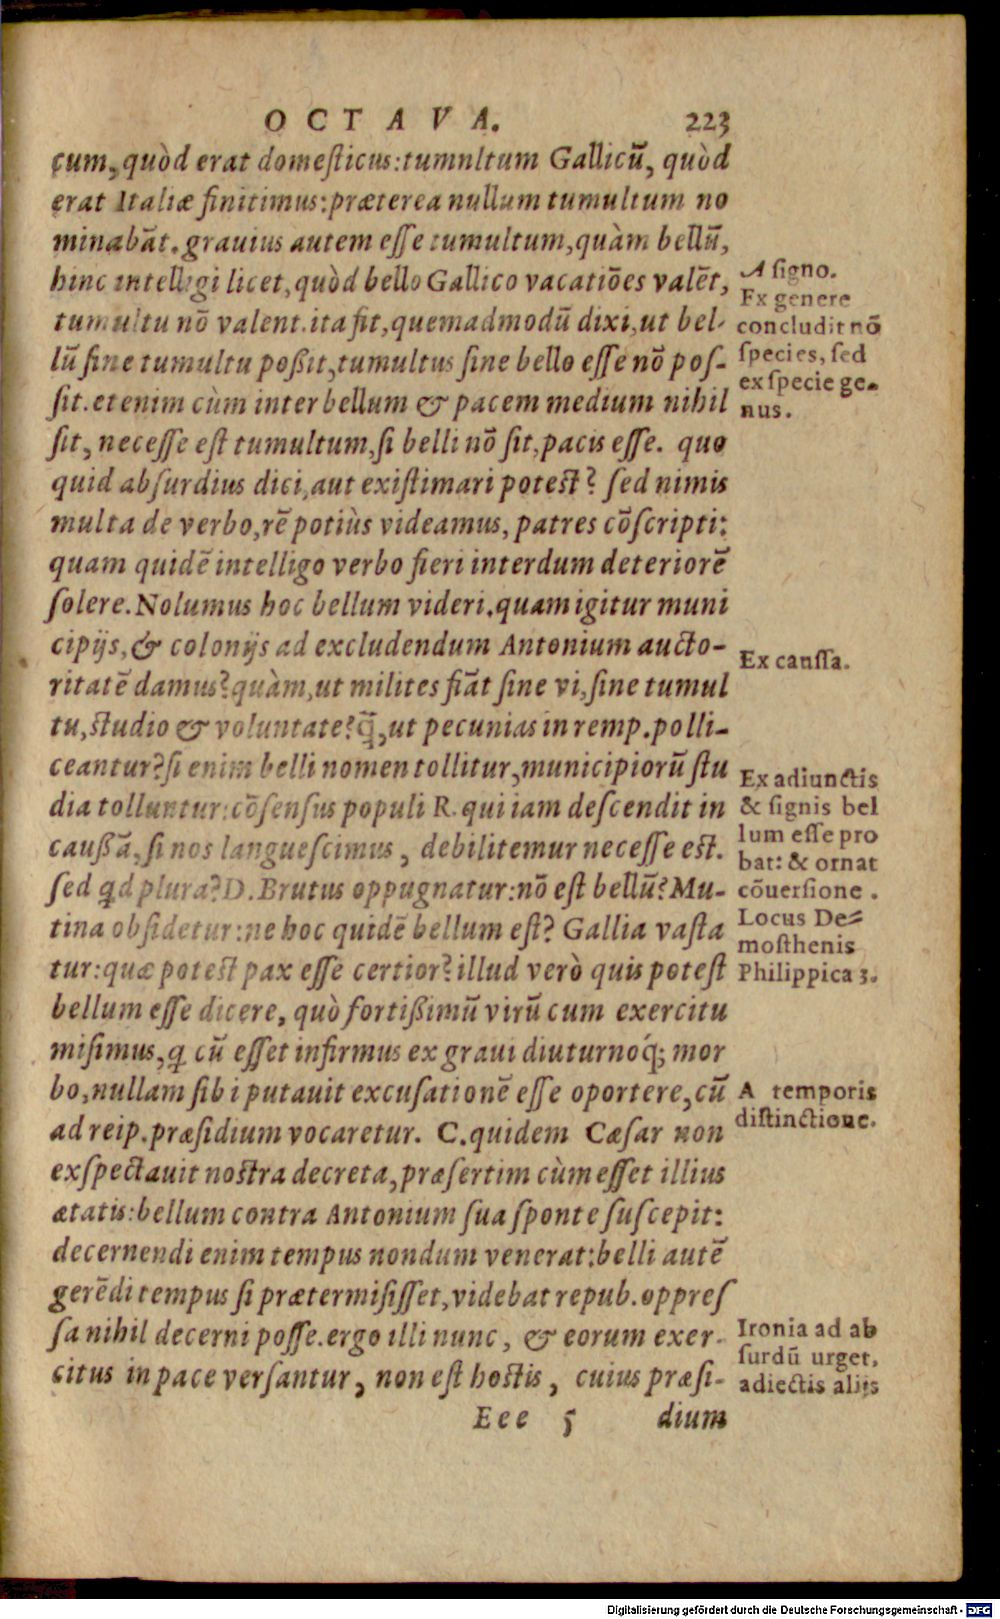 OCTAVA. 223
cum, quòd erat domeſticus:tumnltum Gallicū, quòd
erat Italiæ finitimus:præterea nullum tumultum no
minabāt. grauius autem eſſe tumultum, quàm bellū,
hinc intelligi licet, quòd bello Gallico vacatiōes valēt,
tumultu nō valent. ita fit, quemadmodū dixi, ut bel-
lū ſine tumultu poßit, tumultus ſine bello eſſe nō poſ-
ſit. etenim cùm inter bellum & pacem medium nihil
ſit, neceſſe eſt tumultum, ſi belli nō ſit, pacis eſſe. quo
quid abſurdius dici, aut exiſtimari poteſt? ſed nimis
multa de verbo, rē potiùs videamus, patres cōſcripti:
quam quidē intelligo verbo fieri interdum deteriorē
ſolere. Nolumus hoc bellum videri. quam igitur muni
cipijs, & colonijs ad excludendum Antonium aucto-
ritatē damus? quàm, ut milites fiāt ſine vi, ſine tumul
tu, ſtudio & voluntate? q̄, ut pecunias in remp. polli-
ceantur? ſi enim belli nomen tollitur, municipiorū ſtu
dia tolluntur: cōſenſus populi R. qui iam deſcendit in
cauſſā, ſi nos langueſcimus, debilitemur neceſſe eſt.
ſed qd plura? D. Brutus oppugnatur: nō eſt bellū? Mu-
tina obſidetur: ne hoc quidē bellum eſt? Gallia vaſta
tur: quæ poteſt pax eſſe certior? illud verò quis poteſt
bellum eſſe dicere, quò fortißimū virū cum exercitu
miſimus, q cū eſſet infirmus ex graui diuturnoq́; mor
bo, nullam ſibi putauit excuſationē eſſe oportere, cū
ad reip. præſidium vocaretur. C. quidem Cæſar non
exſpectauit noſtra decreta, præſertim cùm eſſet illius
ætatis: bellum contra Antonium ſua ſponte ſuſcepit:
decernendi enim tempus nondum venerat: belli autē
gerēdi tempus ſi prætermiſiſſet, videbat repub. oppreſ
ſa nihil decerni poſſe. ergo illi nunc, & eorum exer-
citus in pace verſantur, non eſt hoſtis, cuius præſi-
Eee 5 dium
A ſigno.
Ex genere
concludit nō
ſpecies, ſed
ex ſpecie ge-
nus.
Ex cauſſa.
Ex adiunctis
& ſignis bel
lum eſſe pro
bat: & ornat
cōuerſione.
Locus De-
moſthenis
Philippica 3.
A temporis
diſtinctione.
Ironia ad ab
ſurdū urget,
adiectis alijs
Digitalisierung gefördert durch die Deutsche Forschungsgemeinschaft - DFG